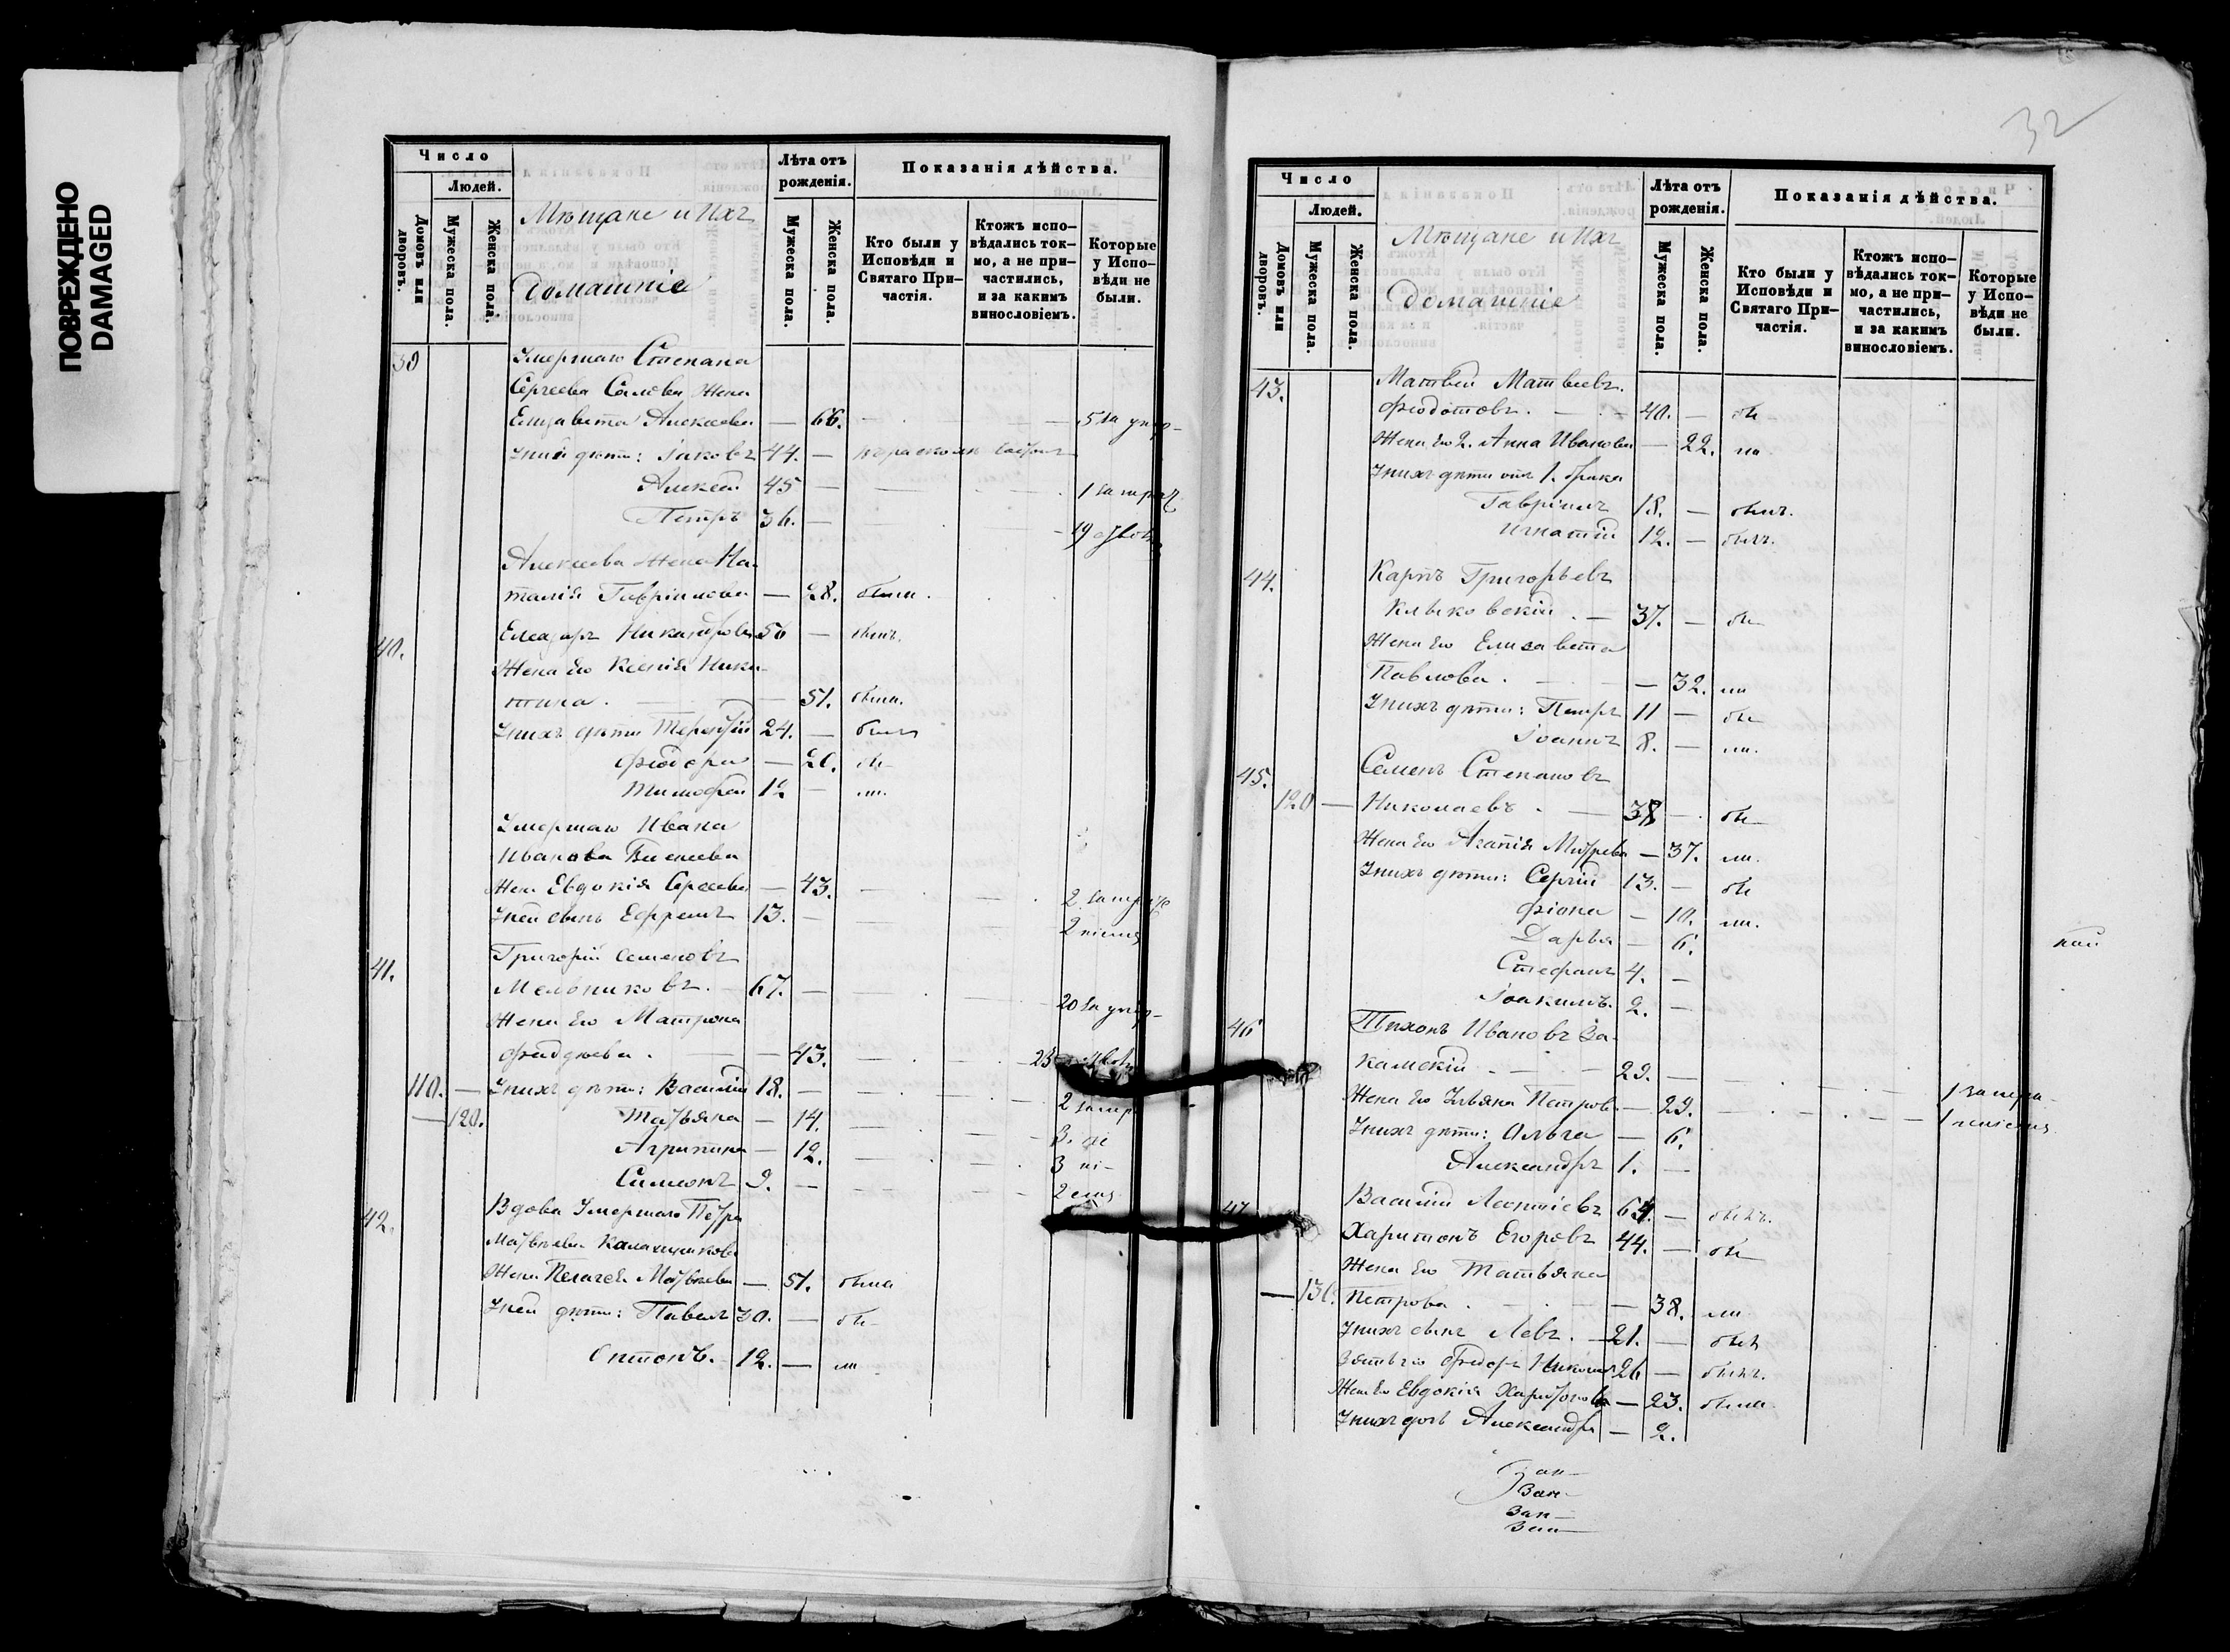 ПОВРЕЖДЕНО
DAMAGED
Число
Людей.
Домовъ или дворовъ.
Мужеска пола.
Женска пола.
Мѣщане и Ихъ
домашніе
Лѣта отъ рожденія.
Мужеска пола.
Женска пола.
Показанія дѣйства.
Кто были у Исповѣди и Святаго При-
частія.
Ктожъ испо-
вѣдались ток-
мо, а не при-
частились,
и за какимъ
винословіемъ.
Которые
у Испо-
вѣди не
были.
39 Умершаго Степана
Сергѣева жена
Елизавета Алексѣева — 66. — 5 за
дѣти: Іаковъ 44. —
Алексѣй 45 — 1 за
Петръ 36. — 19
Алексѣева жена На-
талія Гавріилова — 28. была.
40. Елеазаръ Никандровъ 56 — былъ.
Жена его Ксенія Ники-
тина. — 51. была.
У нихъ дѣти Терентій 24. — былъ
Феодора — 20. бы
Тимофей 12 — ли.
Умершаго Ивана
Иванова
Жена Евдокія Сергеева — 43. — 2
У ней сынъ Ефремъ 13. — 2
41. Григорій Семеновъ
Мельниковъ. 67. — 20 за
Жена его Матрона
Фаддѣева. — 43. — 23
110. — У нихъ дѣти: Василій 18. — 2
— 120. Татьяна — 14. 3.
Агрипина — 12. 3
Симеонъ 9. — 2
42. Вдова Умершаго Петра
Матвѣева Калашникова
Жена Пелагея Матвѣева — 51. была
У ней дѣти: Павелъ 30. — бы
Антонъ. 12. — ли
32
Число
Людей.
Домовъ или дворовъ.
Мужеска пола.
Женска пола.
Мѣщане и Ихъ
домашніе
Лѣта отъ рожденія.
Мужеска пола.
Женска пола.
Показанія дѣйства.
Кто были у
Исповѣди и
Святаго При-
частія.
Ктожъ испо-
вѣдались ток-
мо, а не при-
частились,
и за какимъ
винословіемъ.
Которые
у Испо-
вѣди не
были.
43. Матвѣй Матвѣевъ
Федотовъ. — 40. — бы
Жена его 2. Анна Иванова — 22. ла
У нихъ дѣти отъ 1. брака
Гавріилъ 18. — былъ.
Игнатій 12. — былъ.
44. Карпъ Григорьевъ
37. — бы
Жена его Елизавета
Павлова. — 32. ли
У нихъ дѣти: Петръ 11 — бы
Іоаннъ 8. — ли.
45. Семенъ Степановъ
120 — Николаевъ — 38 — бы
Жена его Агапія — 37. ли.
У нихъ дѣти: Сергій 13. — бы
Фіона — 10. ли.
Дарья — 6.
Стефанъ 4. —
Іоакимъ. 2. —
46 Тихонъ Ивановъ За-
камскій — 29. — 1 за
Жена его Ульяна Петрова — 29. — 1
У нихъ дѣти: Ольга — 6.
Александръ 1. —
47 Василій Леонтіевъ 64. — былъ.
Харитонъ Егоровъ 44. — бы
Жена его Татьяна
— 130. Петрова. — 38. ли
У нихъ сынъ Левъ. 21. — былъ
Зять его Федоръ 26 — былъ.
Жена его Евдокія Харитонова — 23. была
У нихъ дочь Александра — 2.
Зап—
Зап—
Зап—